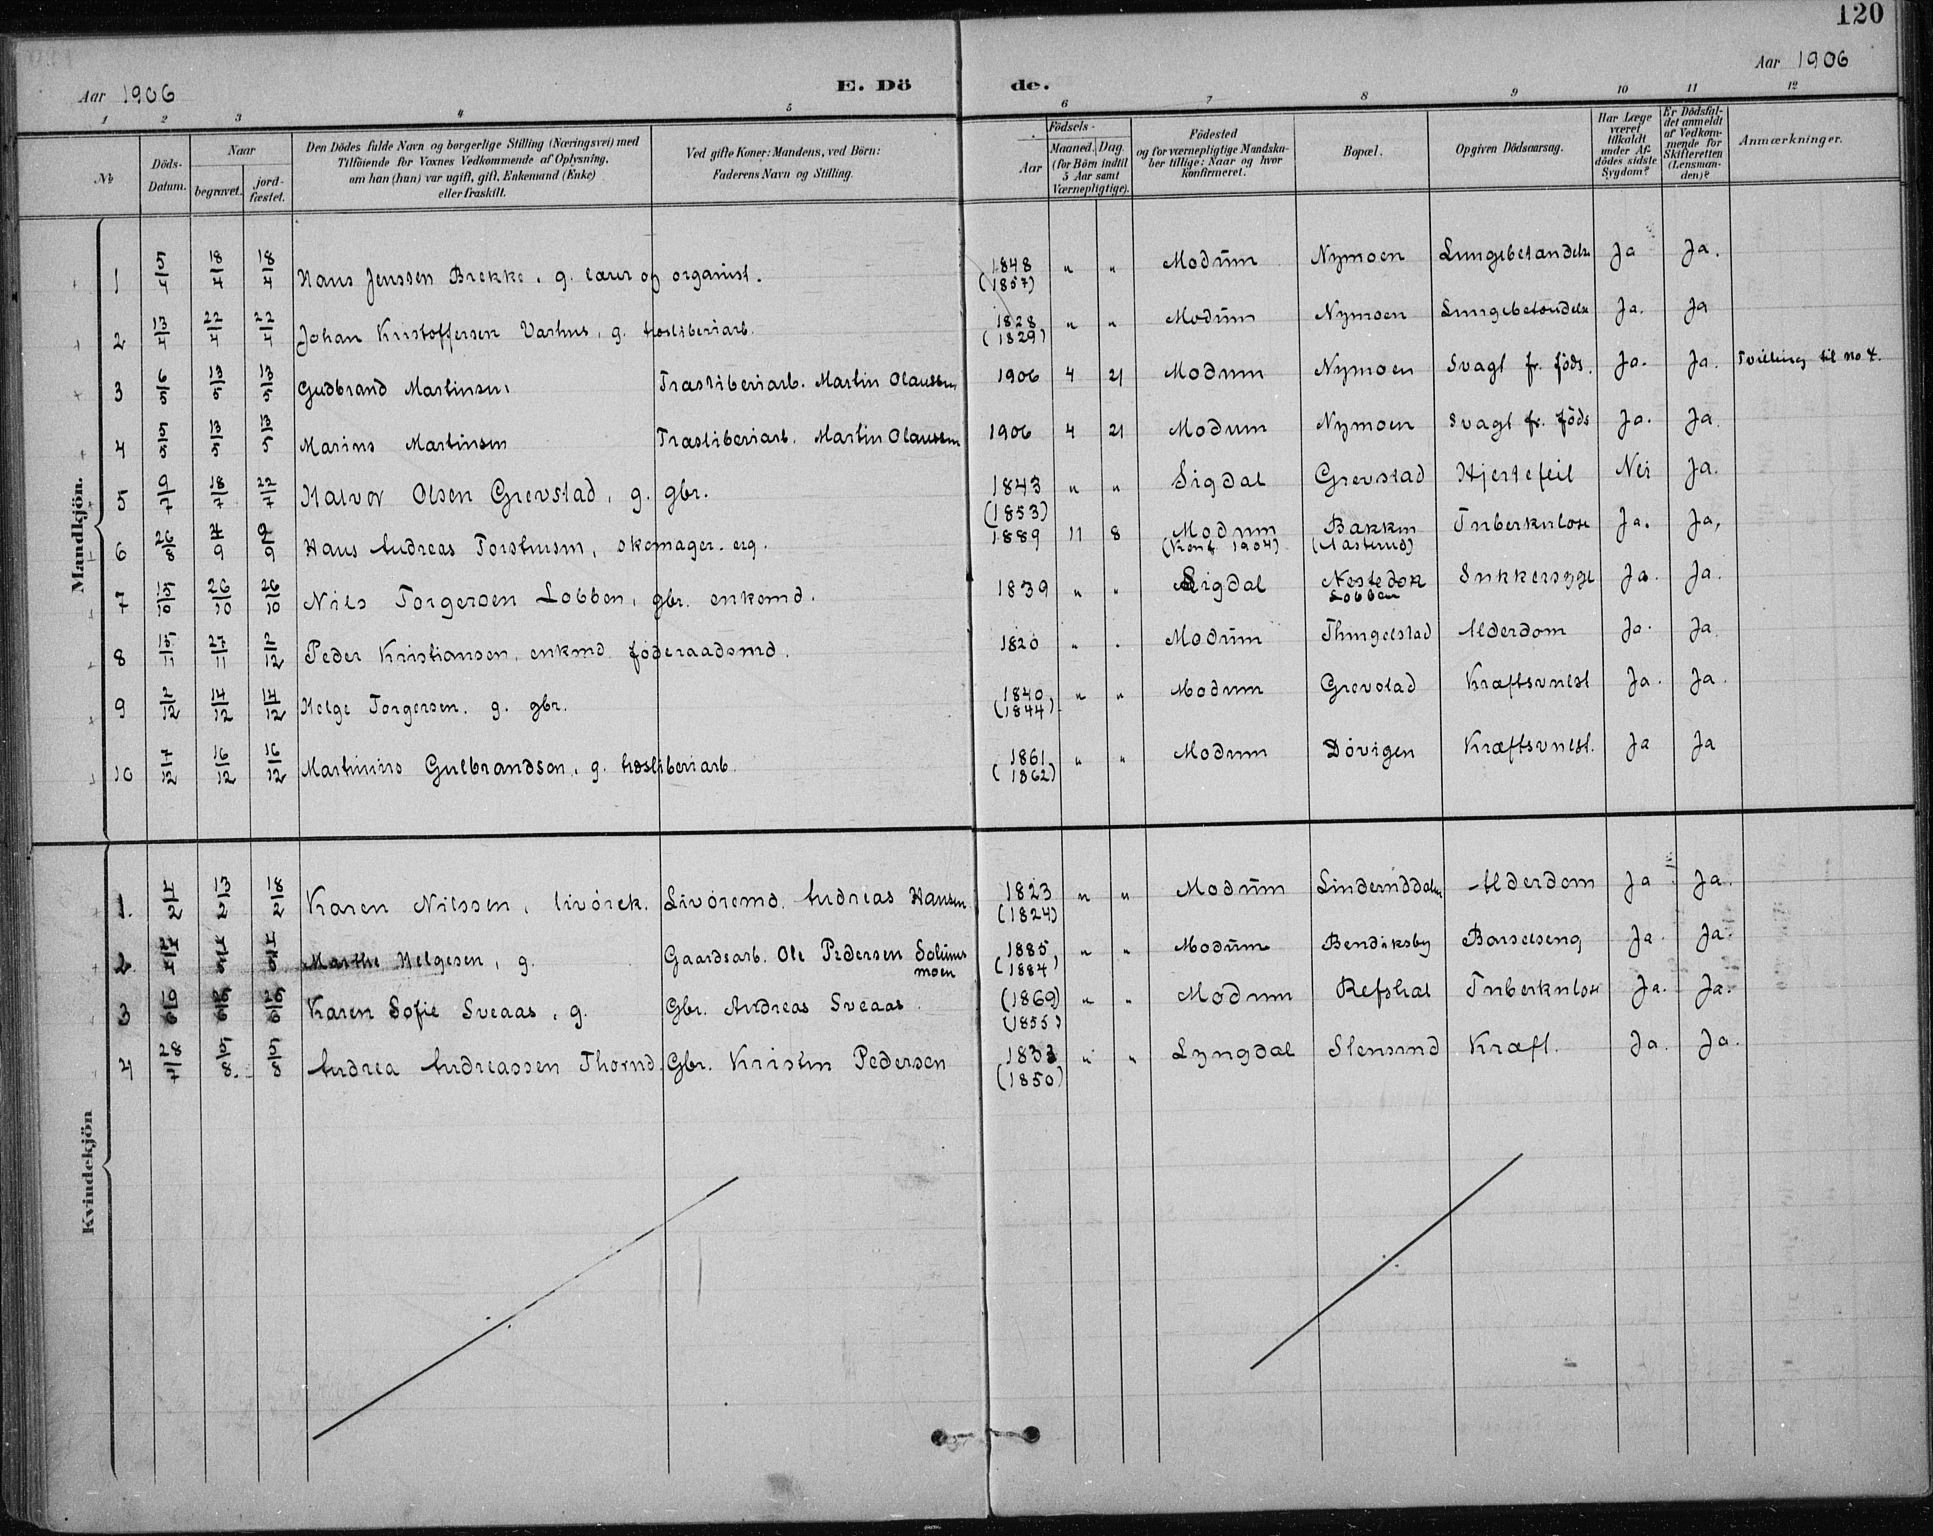 120
Aar 1906
Aar 1906
E. Dö de.
1 2 3 4 5 6 7 8 9 10 11 12
№ Döds-Datum. Naar begravet. jord-fæstet. Den Dödes fulde Navn og borgerlige Stilling (Næringsvei) med Tilföiende for Voxnes Vedkommende af Oplysning, om han (hun) var ugift, gift, Enkemand (Enke) eller fraskilt. Ved gifte Koner: Mandens, ved Börn: Faderens Navn og Stilling. Födsels- Aar Maaned. Dag. (for Börn indtil 5 Aar samt Værnepligtige). Födested og for værnepligtige Mandska-ber tillige: Naar og hvor Konfirmeret. Bopæl. Opgiven Dödsaarsag. Har Læge været tilkaldt under Af-dödes sidste Sygdom? Er Dödsfal-det anmeldt af Vedkom-mende for Skifteretten (Lensman-den)? Anmærkninger.
Mandkjön.
1 5/4 18/4 18/4 Hans Jenssen Brekke, g. lærer og organist. 1848 (1857) " " Modum Nymoen Lungebetændelse Ja Ja.
2 13/4 22/4 22/4 Johan Kristoffersen Varhus, g. træsliberiarb. 1828 (1829) " " Modum Nymoen Lungebetændelse Ja. Ja
3 6/5 13/5 13/5 Gudbrand Martinsen, Træsliberiarb. Martin Olaussen 1906 4 21 Modum Nymoen Svagt fr. föds. Ja. Ja. Tvilling til no 4.
4 5/5 13/5 13/5 Marius Martinsen Træsliberiarb. Martin Olaussen 1906 4 21 Modum Nymoen Svagt fr. föds Ja. Ja.
5 9/7 18/7 22/7 Halvor Olsen Grevstad, g. gbr. 1843 (1853) " " Sigdal Grevstad Hjertefeil Nei Ja.
6 26/8 4/9 9/9 Hans Andreas Torstensen, skomager. erg. 1889 11 8 Modum (Konf. 1904) Bakken (Aasterud) Tuberkulose Ja. Ja,
7 15/10 26/10 26/10 Nils Torgersen Lobben, gbr. enkemd. 1839 " " Sigdal Lobben Sukkersyge Ja. Ja.
8 15/11 27/11 2/12 Peder Kristiansen, enkmd. föderaadsmd. 1820 " " Modum Thingelstad Alderdom Ja. Ja.
9 2/12 14/12 14/12 Helge Torgersen. g. gbr. 1840, (1844) " " Modum Grevstad Kræftsvulst Ja. Ja.
10 7/12 16/12 16/12 Martinius Gulbrandsen, g. træsliberiarb. 1861, (1862) " " Modum Dövigen Kræftsvulst. Ja Ja
Kvindekjön
1. 4/2 13/2 18/2 Karen Nilssen, livörek. Livöremd. Andreas Hansen 1823 (1824) " " Modum Linderuddalen Alderdom Ja Ja.
2. Marthe Helgesen, g. Gaardsarb. Ole Pedersen Solumsmoen 1885, (1884) " " Modum Bendiksby Barselseng Ja. Ja.
3 Karen Sofie Sveaas, g. Gbr. Andreas Sveaas. (1869) (1855) " " Modum Refshal Tuberkulose Ja. Ja.
4 28/7 5/8. 5/8 Andrea Andreassen Thorud. Gbr. Kristen Pedersen 1833 (1850) " " Lyngdal Stensrud Kræft. Ja. Ja.